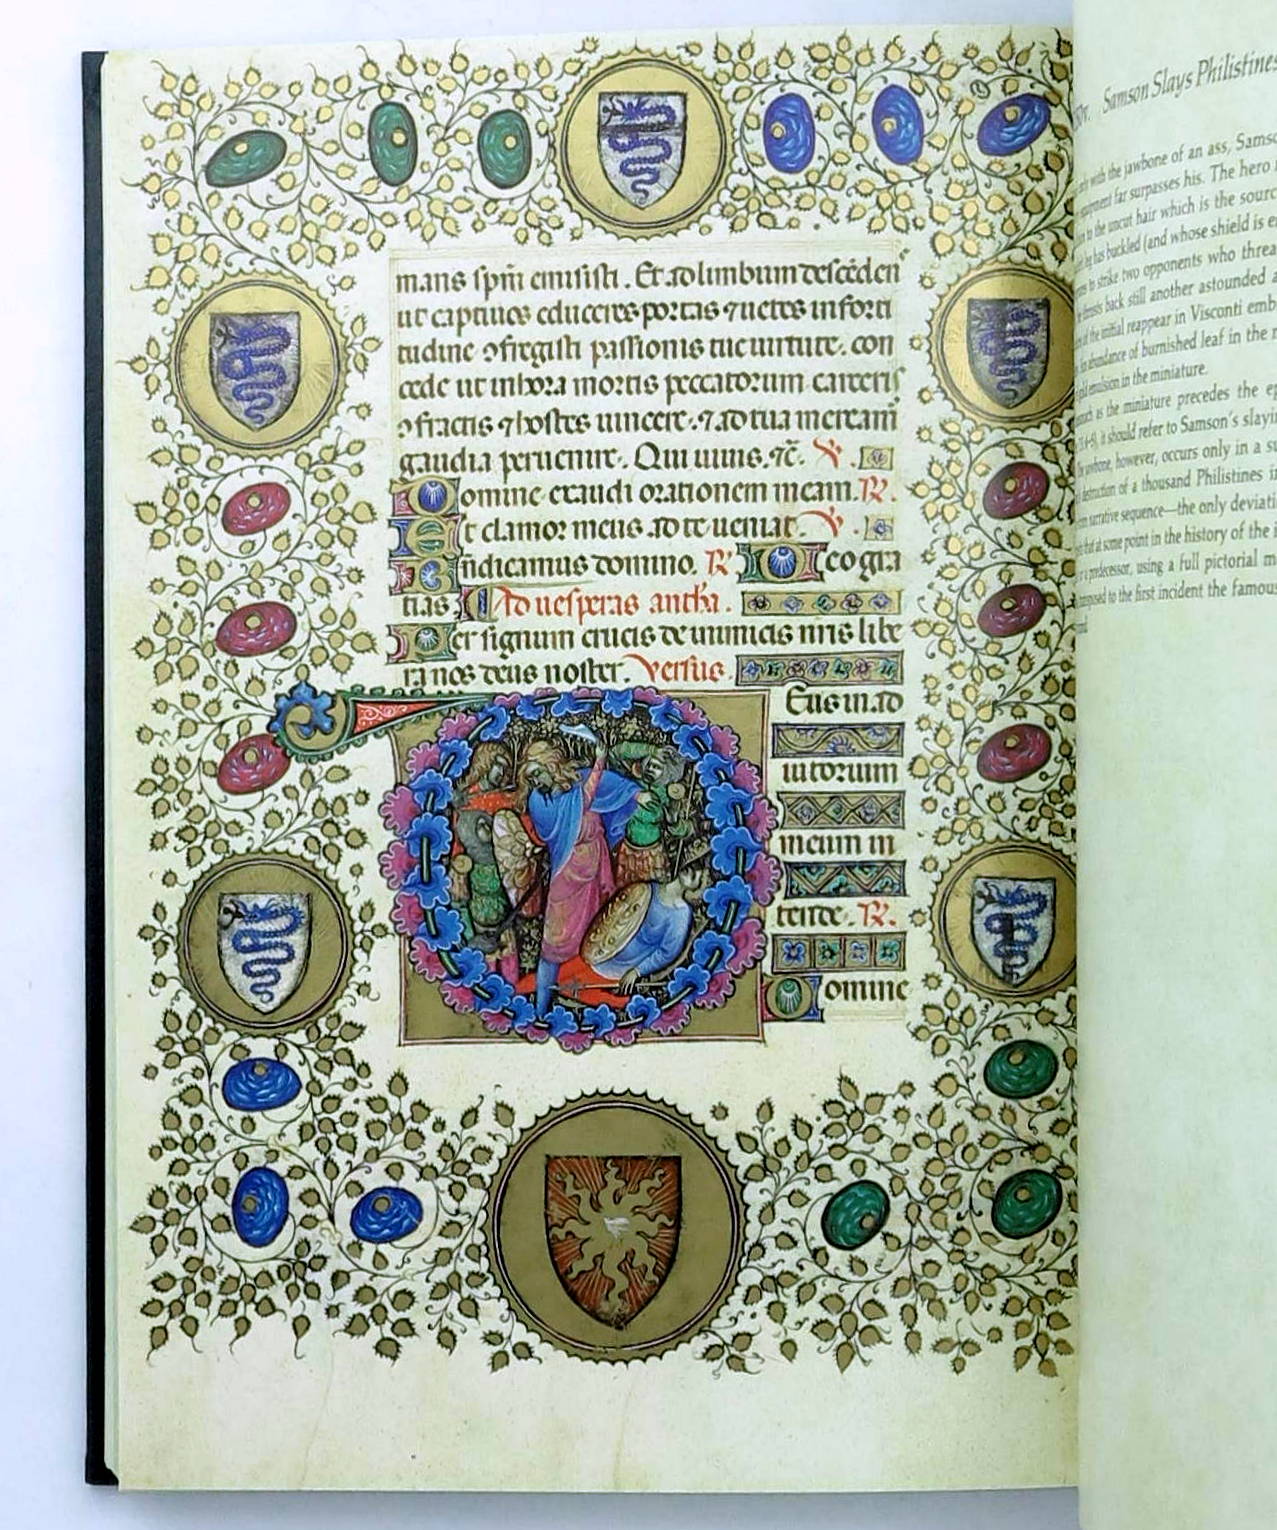 manS spm emisisti. Et ad limbum desceden
ut captiuos educeres portas & uectes in forti
tudine ɔfregisti passionis tue uirtute. con
cede ut in hora mortis peccatorum carceris
ɔfractis & hostes uincere. & ad tua mereami
gaudia peruenire. Qui uiuis. &c. V.
Domine exaudi orationem meam. R.
Et clamor meus ad te ueniat. V.
Bndicamus domino. R Deo gra
tias. Ad uesperas antha.
Per signum crucis de inimicis nris libe
ra nos deus noster. Versus
Eus in ad
iutorium
meum in
tende. R.
Domine
Samson Slays Philistines
with the jawbone of an ass,
equipment far surpasses his. The hero
to the uncut hair which is the
has buckled (and whose shield is
to strike two opponents who
thrusts back still another astounded
of the initial reappear in Visconti
abundance of burnished leaf in the
gold emulsion in the miniature.
as the miniature precedes the
it should refer to Samson's
jawbone, however, occurs only in a
destruction of a thousand Philistines
narrative sequence—the only
that at some point in the history of the
predecessor, using a full pictorial
transposed to the first incident the